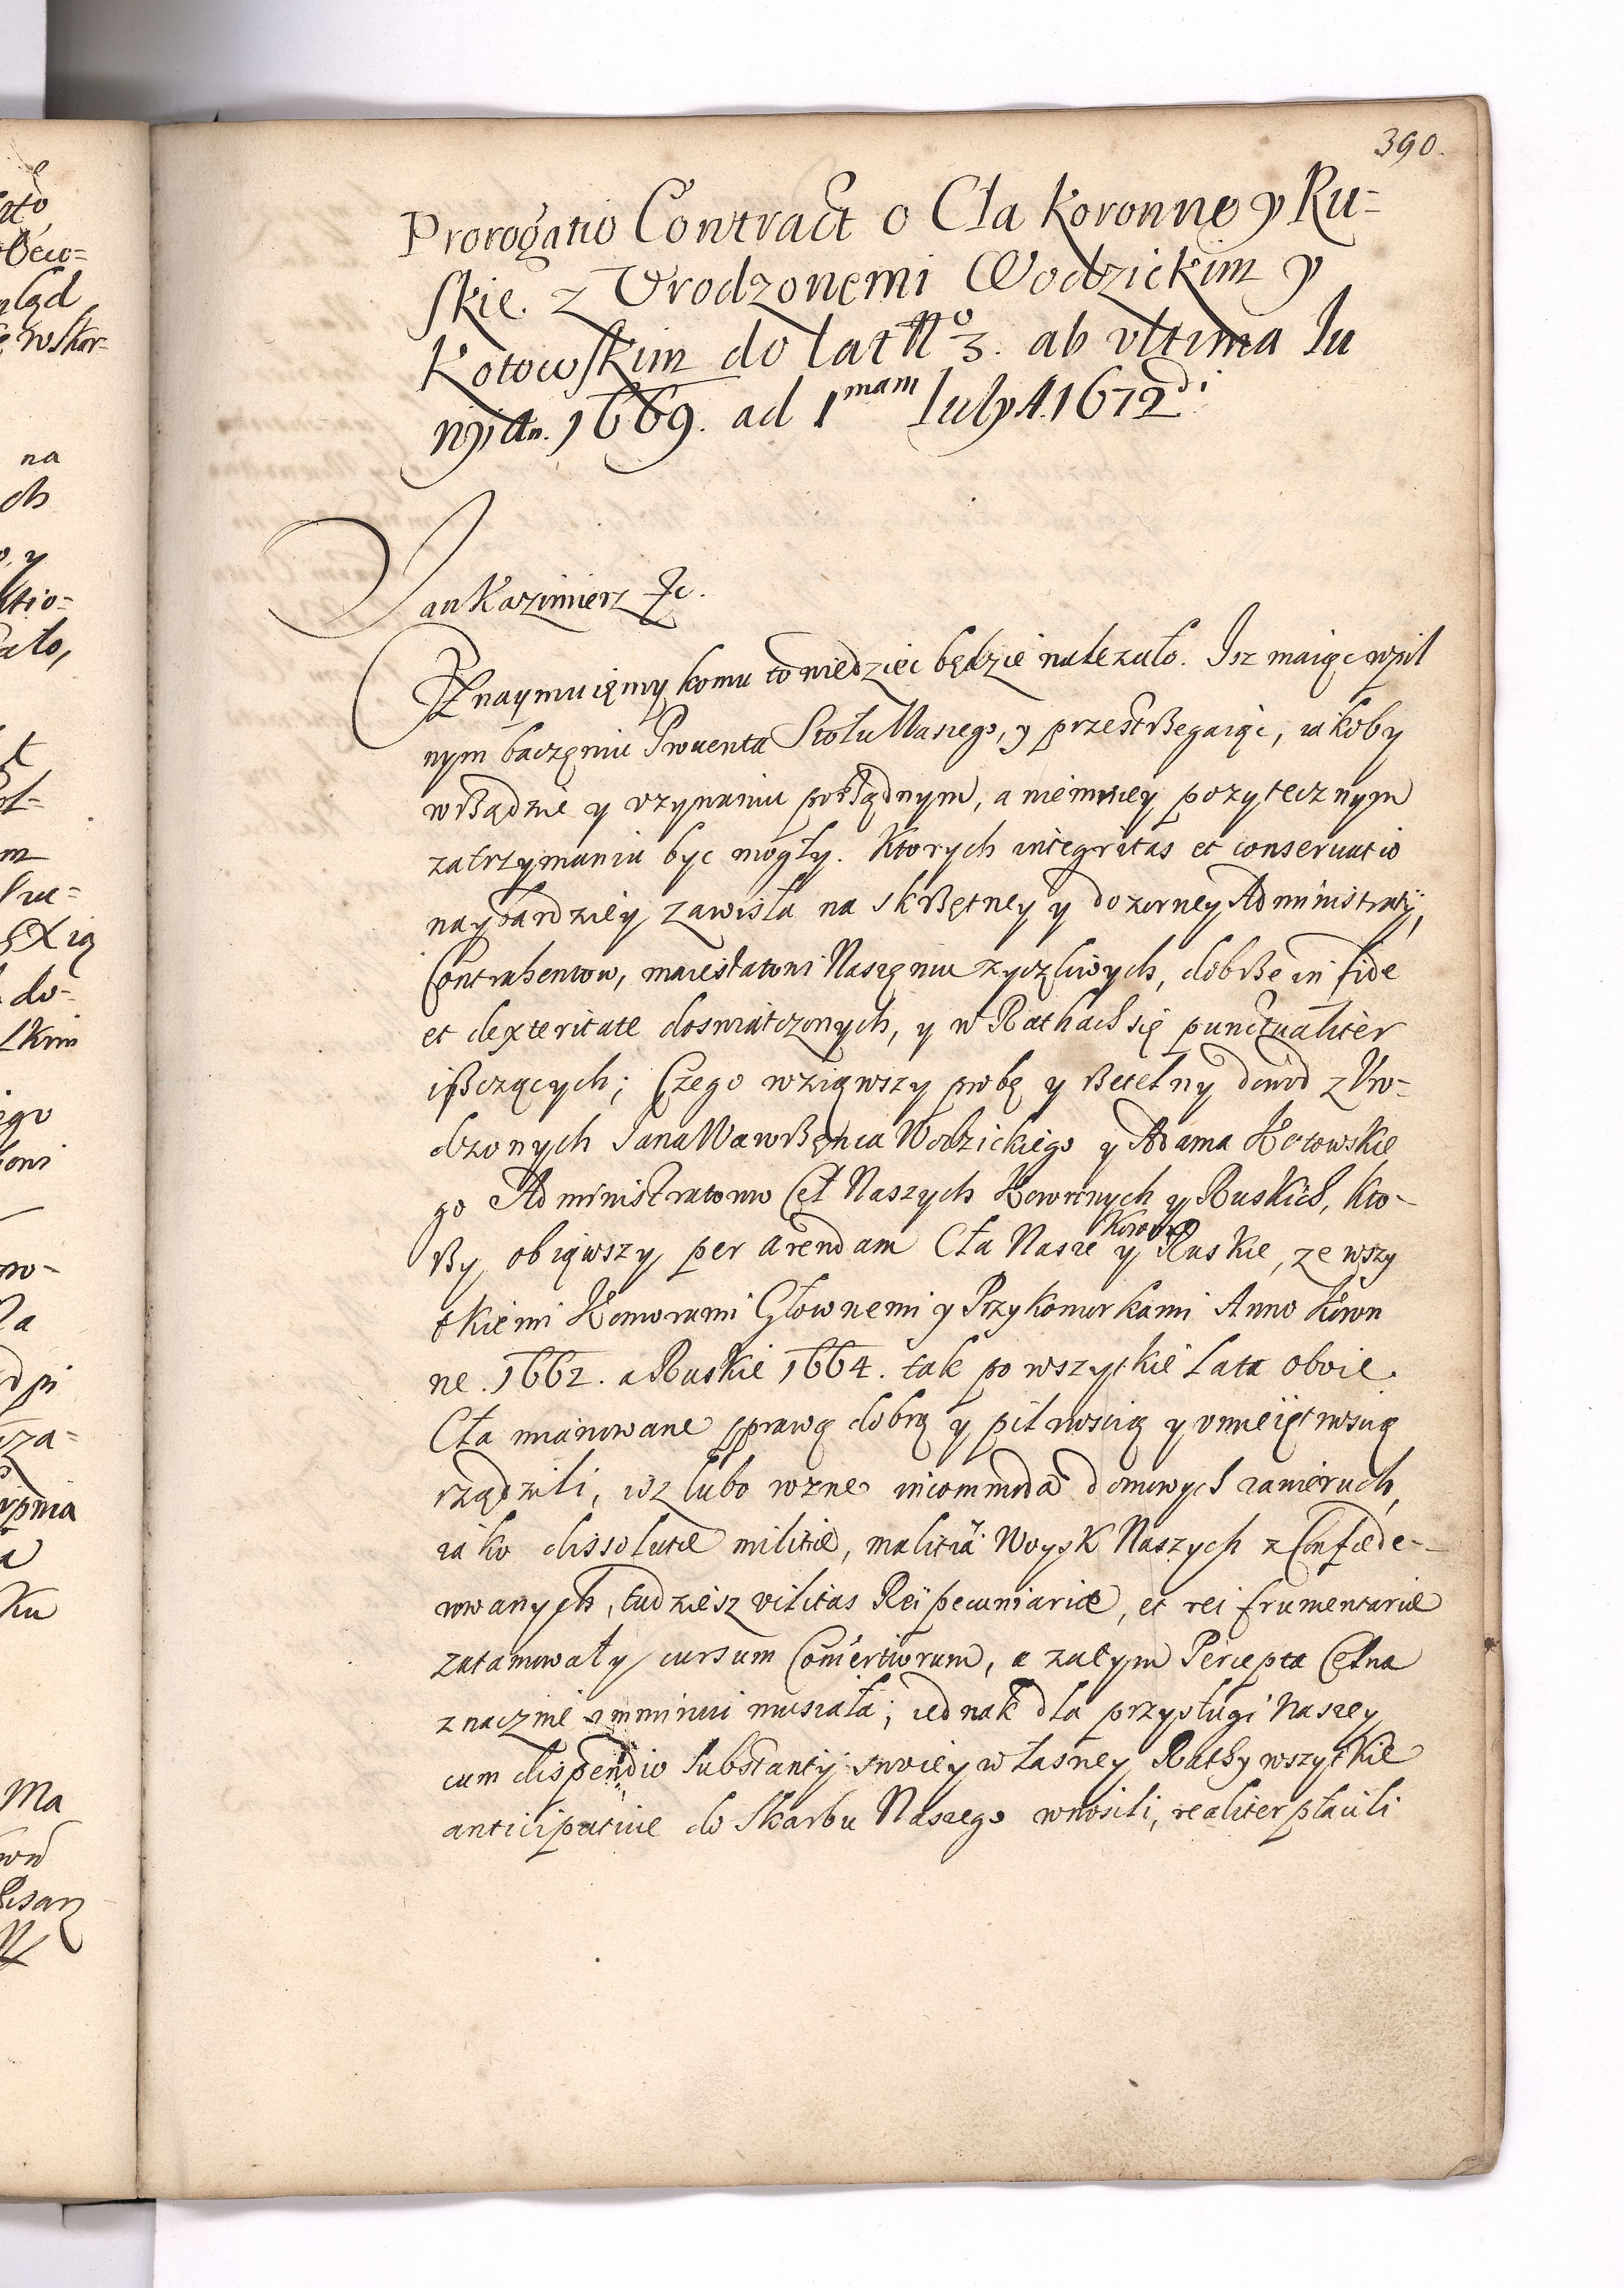 390.
Prorogatio Contract o Cła Koronne y Ru=
skie. z Vrodzonemi Wodzickim y
Kotowskim do lat No 3. ab vltima Iu
nij An. 1669. ad 1mam July A. 1672di
Jan Kazimierz &c.
Oznaymuięmy komu to wiedziec będzie nalezało. Isz maiąc w pil
nym baczęniu Prouenta Stołu Naszego, y przestßegaiąc, iakoby
w ßądzie y vzynaniu poßądnym, a niemniey pozytecznym
zatrzymaniu byc mogły. Ktorych integritas et conseruatio
naybardziey zawisła na skßętney y dozorney Administratij,
Contrahentow, maiestatowi Naszęmu zyczliwych, dobße in fide
et dexteritate doswiatczonych, y w Rathach się punctualiter
ißczących; Czego wziąwszy probę y ßetelny dowod z Vro-
dzonych Jana Wawßęnca Wodzickiego y Adama Kotowskie
go Administratorow Ceł Naszych Koronnych y Ruskich, kto-
ßy, obiąwszy per arendam Cła Nasze Koronne y Ruskie, ze wszy
tkiemi Komorami Głownemi y Przykomorkami Anno Koron
ne. 1662. a Ruskie 1664. tak po wszytkie Lata oboie
Cła mianowane sprawą dobrą y pilnoscią y vmieiętnoscią
rządzili, isz lubo rozne incommoda domowych zamieruch,
iako dissolutæ militiæ, malitia Woysk Naszych z Confæde-
rowanych, tudziesz vilitas Rei pecuniariæ, et rei frumentariæ
zatamowały cursum Comertiorum, a zatym Percepta Celna
znacznie imminui musiała; iednak dla przysługi Naszey
cum dispendio substantij swoiey własney Rathy wszytkie
anticipatiue do Skarbu Naszego wnosili, realiter płacili